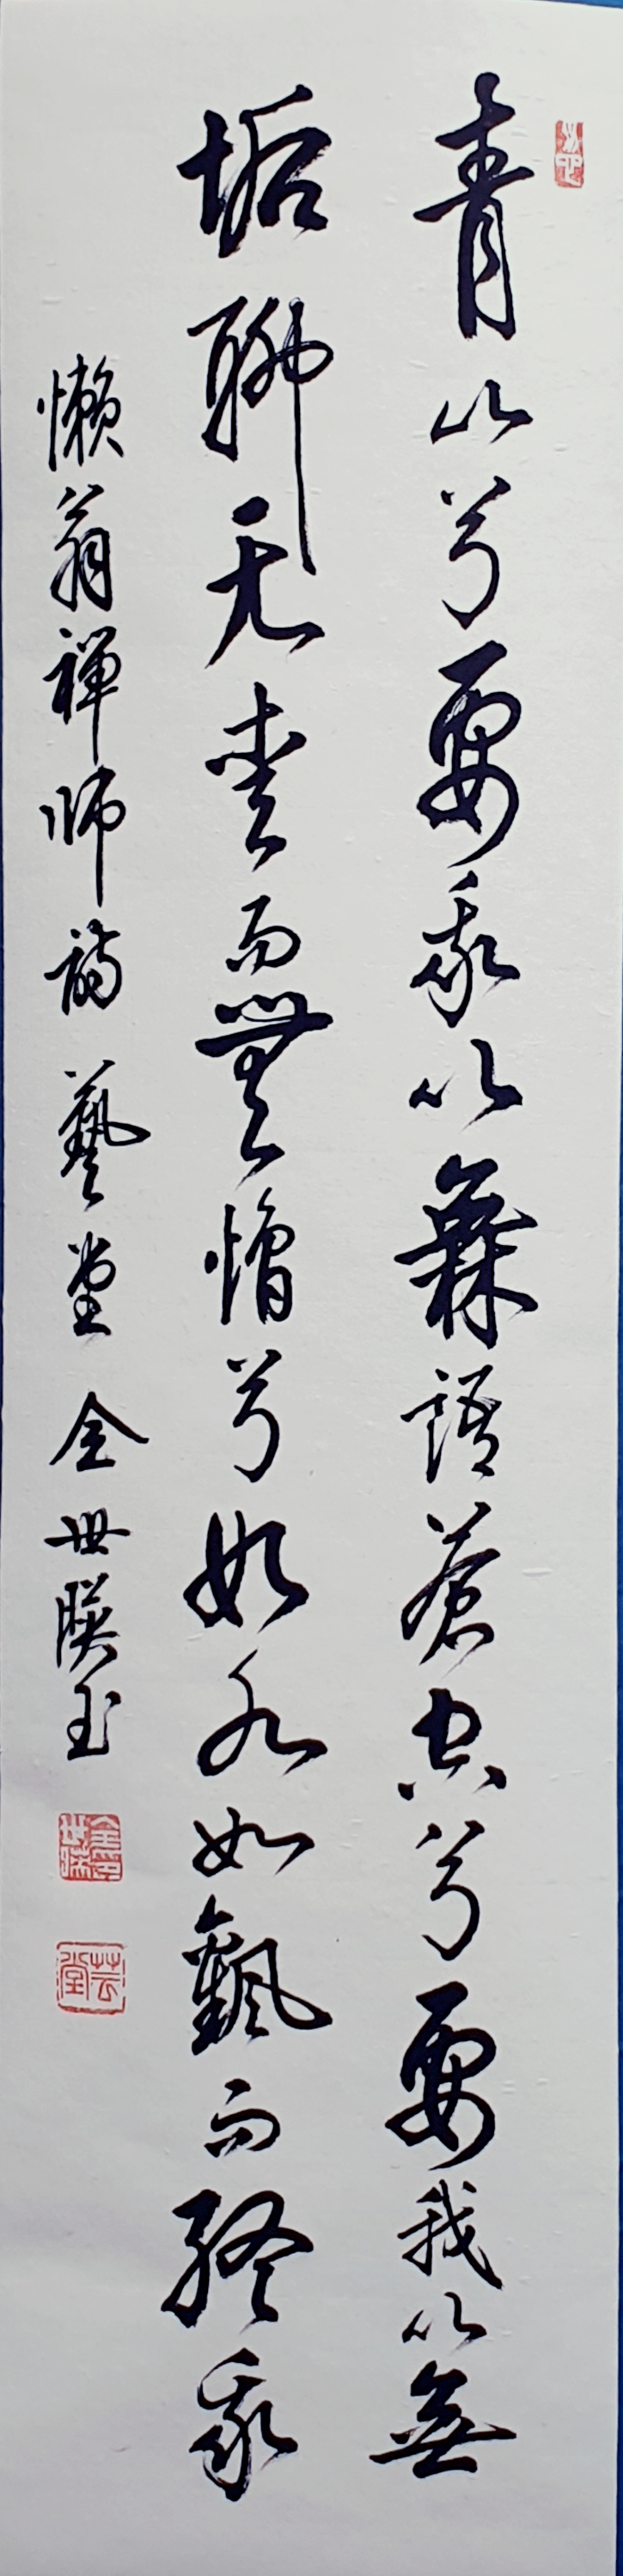 青山兮要我以無語蒼空兮要我以無
垢聊无愛而無憎兮如水如風而終我
懶翁禪師詩 藝堂 金世暎
芸堂